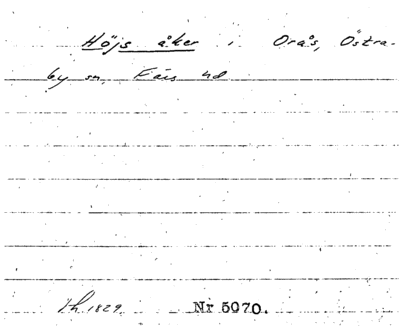 Höjs åker i Orås, Östra-
by sn. Färs hd
1829. Nr 5070.